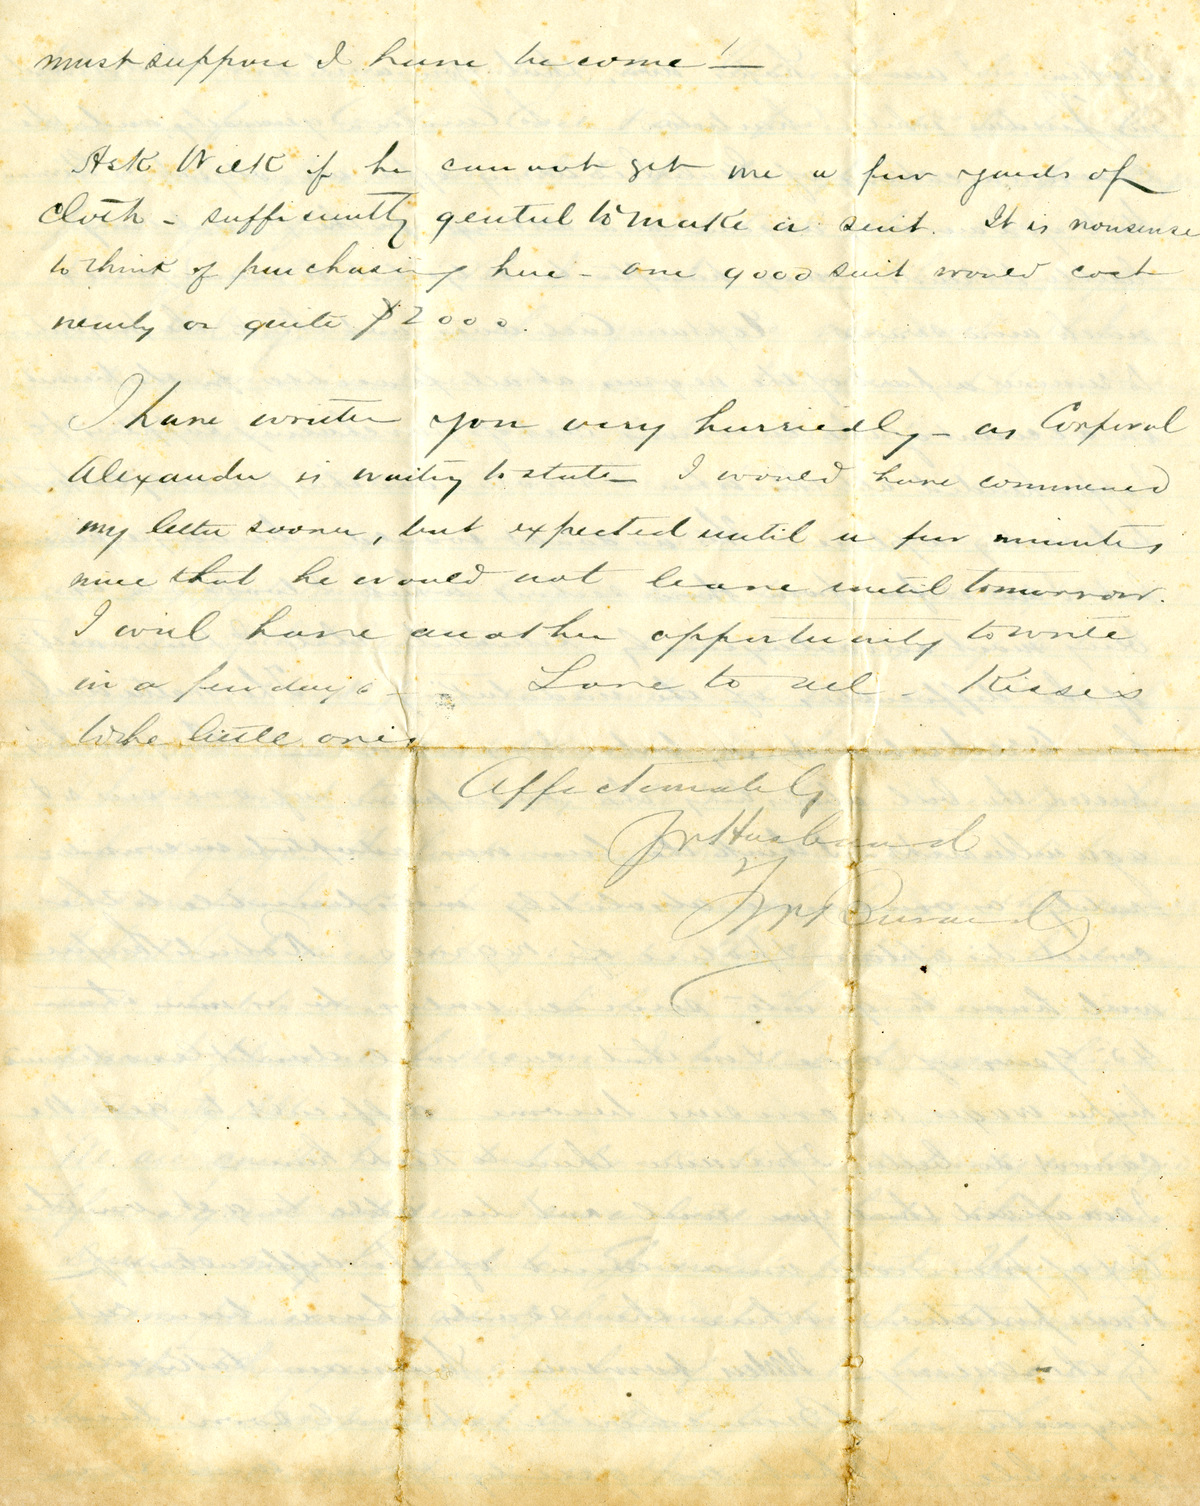 must suppose I have become!—
Ask Wilk if he cannot get me a few yards of
cloth - sufficiently genteel to make a suit. It is nonsense
to think of purchasing here - one good suit would cost
nearly or quite $2000.
I have written you very hurriedly - as Corporal
Alexander is waiting to start— I would have commenced
my letter sooner, but expected until a few minutes
since that he would not leave until tomorrow.
I will have another opportunity to write
in a few days - Love to all - Kisses
to the little ones
Affectionately
Yr Husband